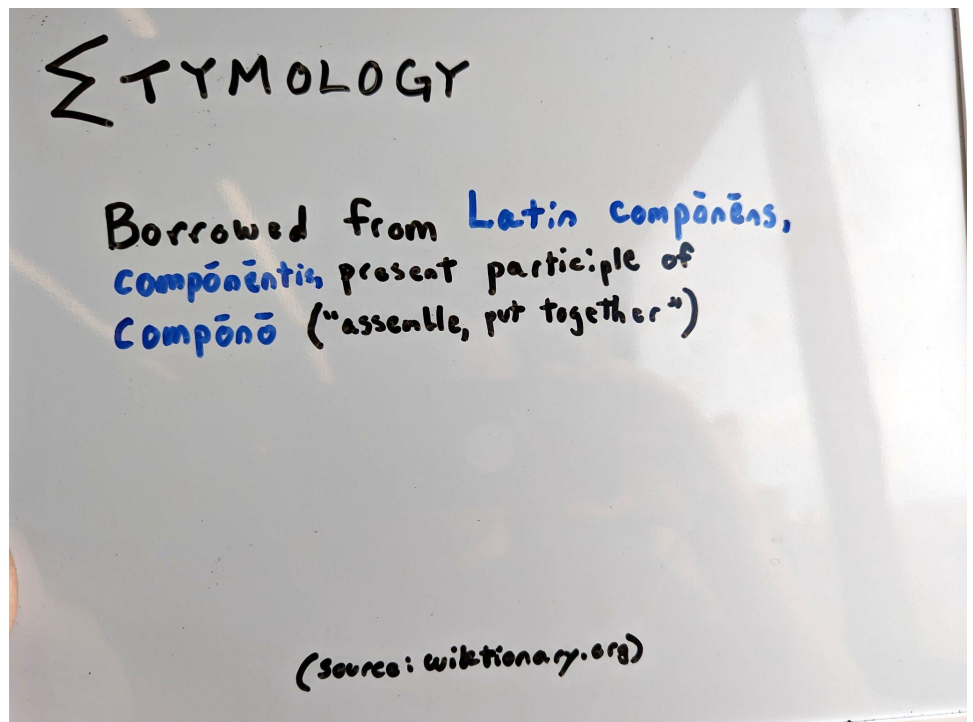 ΣTYMOLOGY
Borrowed from Latin compōnēns,
compōnēntis, present participle of
Compōnō ("assemble, put together")
(source: wiktionary.org)